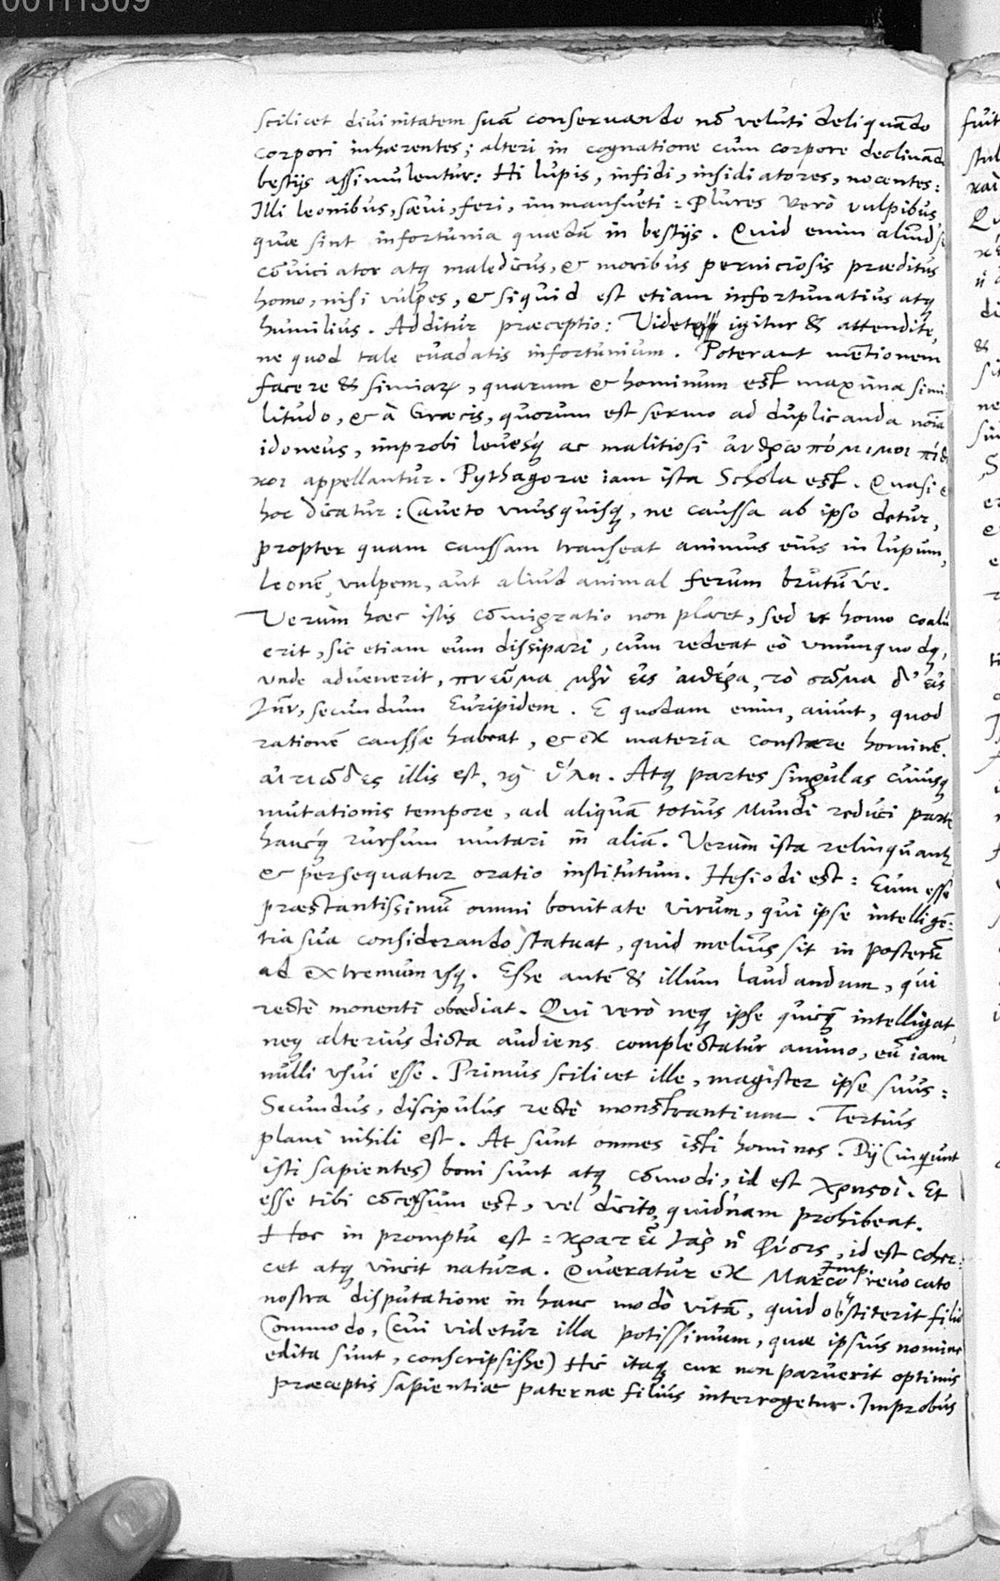 00111309
scilicet divinitatem suā conseruando nō veluti deliquādo
corpori inhærentes; alteri in cognatione cum corpore declinand
bestijs assimulentur: Hi lupis, infidi, insidiatores, nocentes:
Illi leonibus, sæui, feri, immansueti: Plures verò vulpibus,
quæ sint infortunia quædā in bestijs. Quid enim aliud
cōuiciator atq maledicus, & moribus perniciosis præditus
homo, nisi vulpes, & siquid est etiam infortunatius atq
humilius. Additur præceptio: Videte igitur & attendite,
ne quod tale euadatis infortunium. Poterant mētionem
facere & simiarꝝ, quarum & hominum est maxima simi
litudo, & à Græcis, quorum est sermo ad duplicanda noīa
idoneus, improbi leuesq́ ac malitiosi ἀνθρωπόμιμοι πίθ
κοι appellantur. Pythagoræ iam ista Schola est. Quasi
hoc dicatur: Caueto vnusquisq, ne caussa ab ipso detur,
propter quam caussam transeat animus eius in lupum,
leonē, vulpem, aut aliud animal ferum brutū́ve.
Verùm hæc istis cōmigratio non placet, sed vt homo coalu
erit, sic etiam eum dissipari, cum redeat eò vnumquodq,
vnde aduenerit, πνεῦμα μὲν εἰς αἰθέρα, τὸ σῶμα δ' εἰς
γῆν, secundum Euripidem. E quodam enim, aiunt, quod
rationē caussæ habeat, & ex materia constare hominē.
αἰτιῶδες illis est, καὶ ὕλη. Atq partes singulas cuiusq
mutationis tempore, ad aliquā totius Mundi reduci partē
hancq́ rursum mutari in aliā. Verùm ista relinquant
& persequatur oratio institutum. Hesiodi est: Eum esse
præstantissimū omni bonitate virum, qui ipse intelligē-
tia sua considerando statuat, quid melius sit in posterū
ad extremum vsq. Esse autē & illum laudandum, qui
rectè monenti obediat. Qui verò neq ipse quicq̄ intelligat,
neq alterius dicta audiens complectatur animo, eū iam
nulli vsui esse. Primus scilicet ille, magister ipse suus:
Secundus, discipulus rectè monstrantium. Tertius
planè nihili est. At sunt omnes isti homines. Dij (inquiunt
isti sapientes) boni sunt atq cōmodi, id est χρηστοὶ. Et
esse tibi cōcessum est, vel dicito, quidnam prohibeat.
Hoc in promptu est: κρατεῖ γὰρ ἡ φύσις, id est coher-
cet atq vincit natura. Quæratur ex Marco Imp. reuocato
nostra disputatione in hanc modò vitā, quid obstiterit filio
Commodo, (cui videtur illa potissimum, quæ ipsius nomine
edita sunt, conscripsisse) Hic itaq cur non paruerit optimis
præceptis sapientiæ paternæ filius interrogetur. Improbus